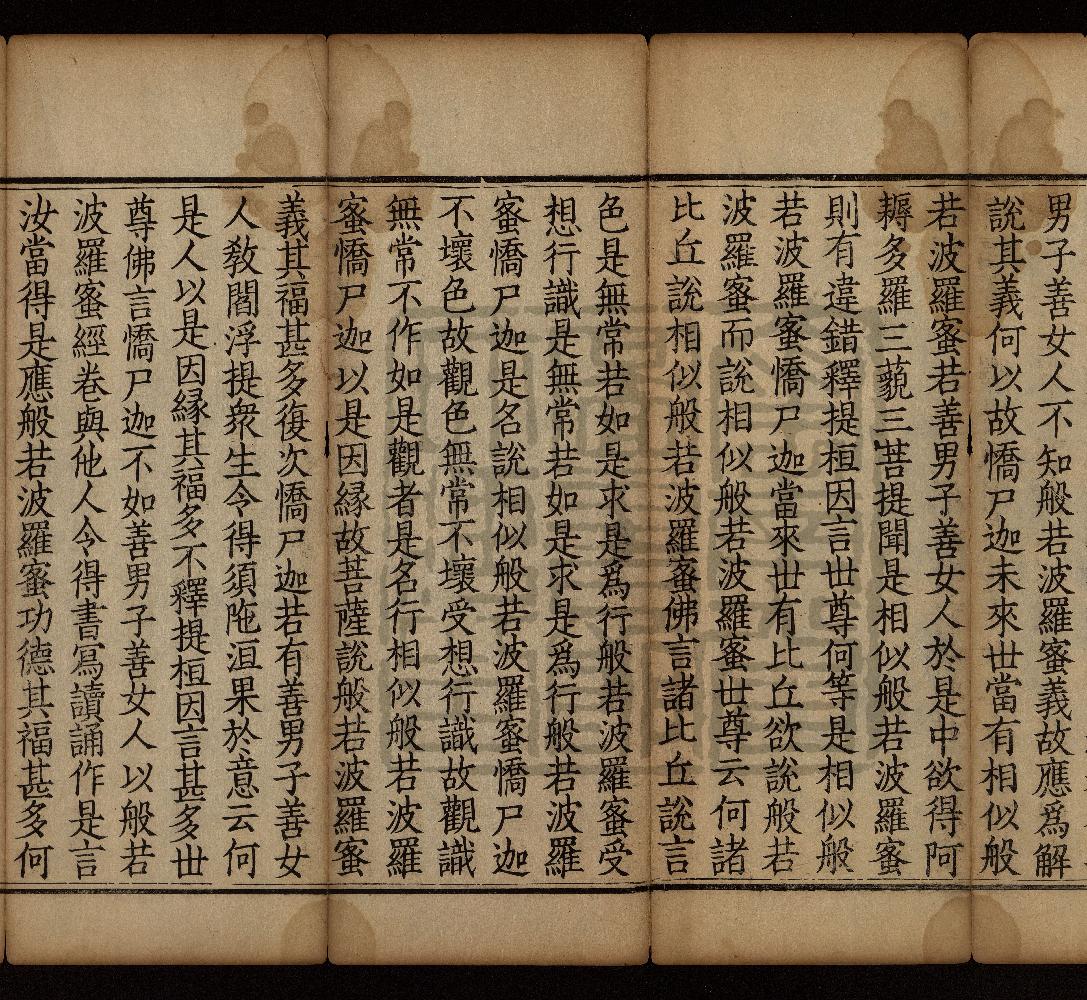 男子善女人不知般若波羅蜜義故應爲解
說其義何以故憍尸迦未來世當有相似般
若波羅蜜若善男子善女人於是中欲得阿
耨多羅三藐三菩提聞是相似般若波羅蜜
則有違錯釋提桓因言世尊何等是相似般
若波羅蜜憍尸迦當來世有比丘欲說般若
波羅蜜而說相似般若波羅蜜世尊云何諸
比丘說相似般若波羅蜜佛言諸比丘說言
色是無常若如是求是爲行般若波羅蜜受
想行識是無常若如是求是爲行般若波羅
蜜憍尸迦是名說相似般若波羅蜜憍尸迦
不壞色故觀色無常不壞受想行識故觀識
無常不作如是觀者是名行相似般若波羅
蜜憍尸迦以是因緣故菩薩說般若波羅蜜
義其福甚多復次憍尸迦若有善男子善女
人教閻浮提衆生令得須陁洹果於意云何
是人以是因緣其福多不釋提桓因言甚多世
尊佛言憍尸迦不如善男子善女人以般若
波羅蜜經卷與他人令得書寫讀誦作是言
汝當得是應般若波羅蜜功德其福甚多何